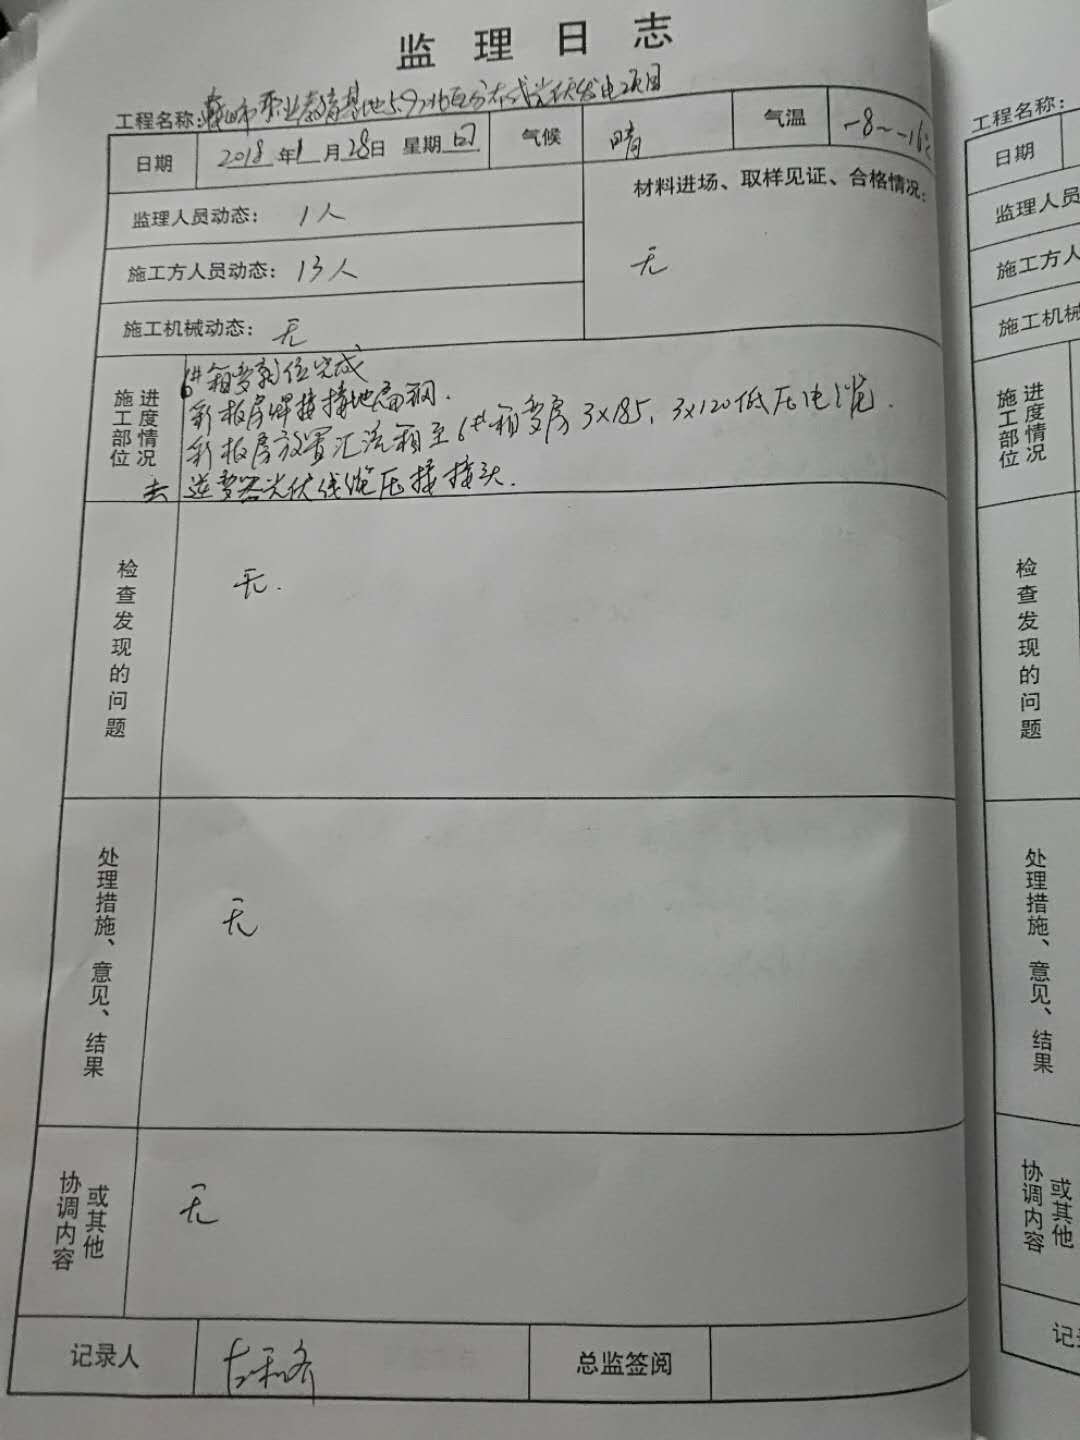 监理日志
工程名称:鞍山市职业教育基地5.9兆瓦分布式光伏发电项目
日期 2018年1月28日 星期日 气候 晴 气温 -8~-16℃
监理人员动态: 1人
材料进场、取样见证、合格情况:
施工方人员动态: 13人
无
施工机械动态: 无
施工部位进度情况
6#箱变就位完成
彩板房焊接接地扁钢.
彩板房放置汇流箱至6#箱变房3×185,3×120低压电缆.
逆变器光伏线缆压接接头.
检查发现的问题
无.
处理措施、意见、结果
无
协调内容或其他
无
记录人
总监签阅
工程名称:
日期
监理人员
施工方人
施工机械
施工部位进度情况
检查发现的问题
处理措施、意见、结果
协调内容或其他